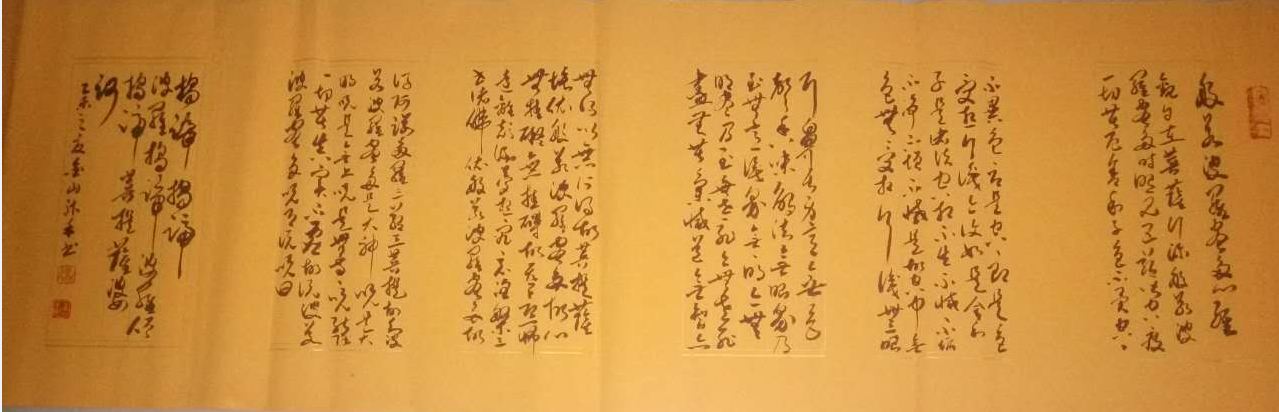 般若波羅蜜多心經
觀自在菩薩行深般若波
羅蜜多時照見五蘊皆空度
一切苦厄舍利子色不異空空
不異色色即是空空即是色
受想行識亦復如是舍利
子是諸法空相不生不滅不垢
不淨不增不減是故空中無
色無受想行識無眼
耳鼻舌身意無色
聲香味觸法無眼界乃
至無意識界無無明亦無
無明盡乃至無老死亦無老死
盡無苦集滅道無智亦
無得以無所得故菩提薩
埵依般若波羅蜜多故心
無罣礙無罣礙故無有恐怖
遠離顛倒夢想究竟涅槃三
世諸佛依般若波羅蜜多故
得阿耨多羅三藐三菩提故知般
若波羅蜜多是大神咒是大
明咒是無上咒是無等等咒能除
一切苦真實不虛故說般若
波羅蜜多咒即說咒曰
揭諦揭諦
波羅揭諦波羅僧
揭諦菩提薩婆
訶
乙未之夏山書